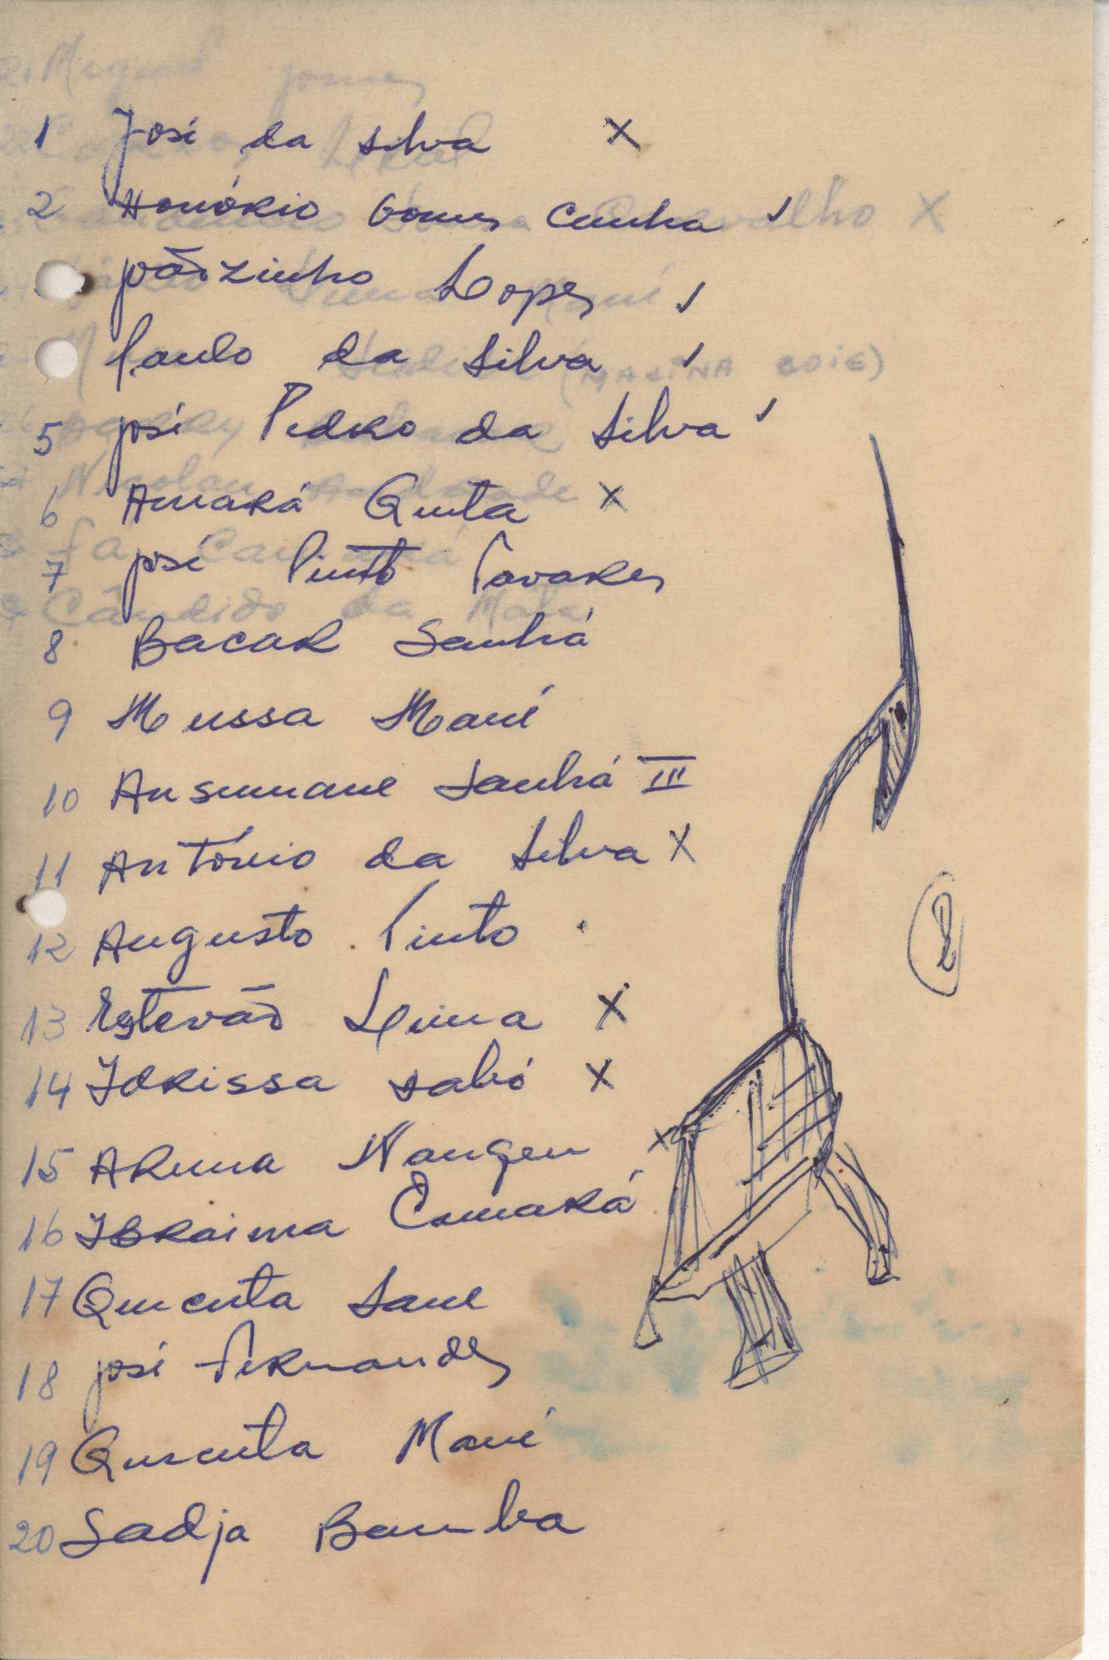 1 José da Silva X
2 Honório Gomes Cunha
joãozinho Lopes
Paulo da Silva
5 josé Pedro da Silva
6 Amará Quita X
7 josé Pinto Tavares
8 Bacar Sanhá
9 Mussa Mané
10 Ansumane Sanhá III
11 António da Silva X
12 Augusto Pinto
13 Estevão Lima X
14 Idrissa sabó X
15 Aruna X
16 Ibraima Camará
17 Quecuta Sane
18 josé Fernandes
19 Quecuta Mané
20 Sadja Bamba
2